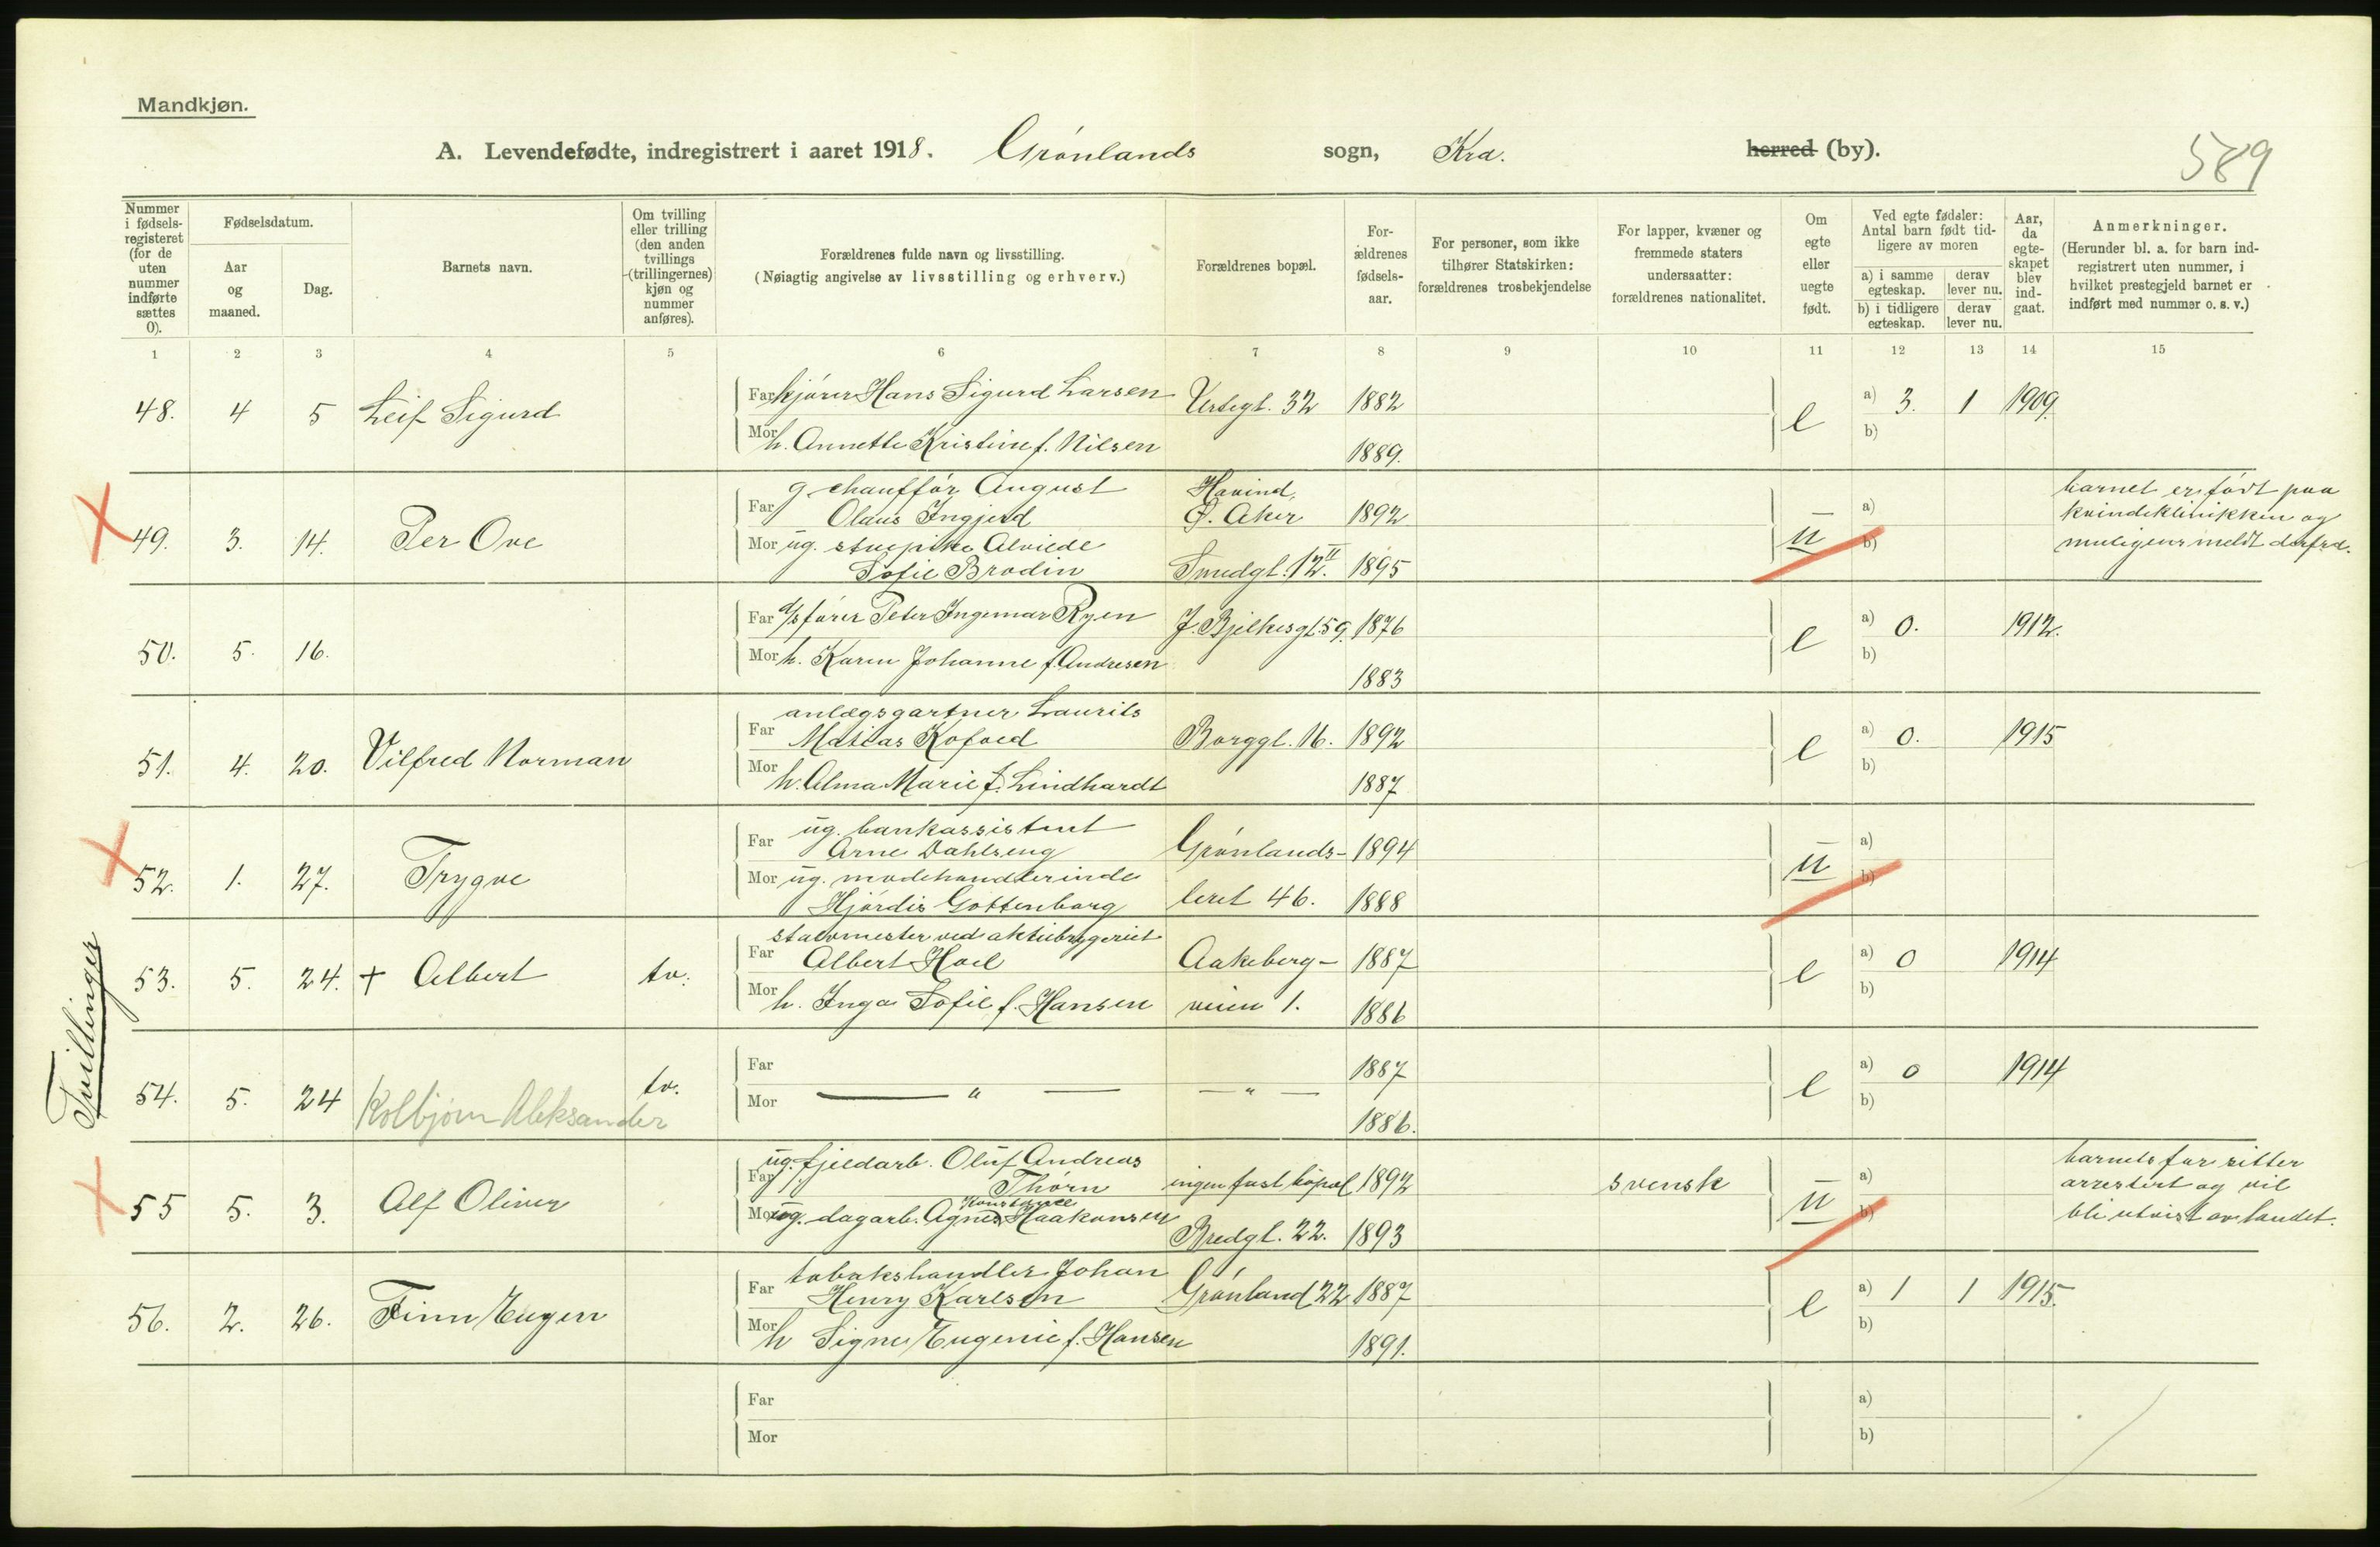 Mandkjøn.
A. Levendefødte, indregistrert i aaret 1918. Grønlands sogn, Kra. herred (by).
589
Nummer i fødsels-registeret (for de uten nummer indførte sættes 0).
Fødselsdatum.
Aar og maaned.
Dag.
Barnets navn.
Om tvilling eller trilling (den anden tvillings (trillingernes) kjøn og nummer anføres).
Forældrenes fulde navn og livsstilling.
(Nøiagtig angivelse av livsstilling og erhverv.)
Forældrenes bopæl.
For-ældrenes fødsels-aar.
For personer, som ikke tilhører Statskirken: forældrenes trosbekjendelse
For lapper, kvæner og fremmede staters undersaatter: forældrenes nationalitet.
Om egte eller uegte født.
Ved egte fødsler: Antal barn født tid-ligere av moren
a) i samme egteskap.
derav lever nu.
b) i tidligere egteskap.
derav lever nu.
Aar, da egte-skapet blev ind-gaat.
Anmerkninger.
(Herunder bl. a. for barn ind-registrert uten nummer, i hvilket prestegjeld barnet er indført med nummer o. s. v.)
1 2 3 4 5 6 7 8 9 10 11 12 13 14 15
Far kjører Hans Sigurd Larsen Urtegt. 32 1882
48. 4 5 Leif Sigurd e a) 3. 1 1909. b)
Mor h. Annette Kristine f. Nilsen 1889.
Far g. chauffør August Havind,
Olaus Ingjerd Ø. Aker 1892
49. 3. 14. Per Ove u a) b)
Mor ug. stuepike Alvilde
Sofie Brodin Smedgt. 12 II. 1895
barnet er født paa
kvindeklinikken og
muligens meldt derfra.
Far fører Peter Ingemar Ryen J. Bjelkesgt. 59. 1876
50. 5. 16. e a) 0. 1912. b)
Mor h. Karen Johanne f. Andresen 1883
anlægsgartner Laurits
Far Matias Kofoed Borggt. 16. 1892
51. 4. 20. Vilfred Norman e a) 0. 1915 b)
Mor h. Alma Marie f. Lindhardt 1887
ug. bankassistent
Far Arne Dahlseng Grønlands- 1894
52. 1. 27. Trygve u a) b)
Mor ug. modehandlerinde
Hjørdis Gottenborg leret 46. 1888
Tvillinger
staldmester ved aktiebryggeriet
Far Albert Hoel Aakeberg- 1887
53. 5. 24. + Albert tv. e a) 0 1914 b)
Mor h. Inga Sofie f. Hansen veien 1. 1886
Far 1887
54. 5. 24 Kolbjørn Aleksander tv. — " — — " — e a) 0 1914 b)
Mor 1886.
ug. fjeldarb. Oluf Andreas
Far Thørn ingen fast bopæl 1892 svensk
55 5. 3. Alf Oliver u a) b)
Konstance
Mor ug. dagarb. Agnes Haakonsen Bredgt. 22. 1893
barnets far sitter
arrestert og vil
bli utvist av landet.
tobakshandler Johan
Far Henry Karlsen Grønland 22 1887
56. 2. 26. Finn Eugen e a) 1 1 1915. b)
Mor h Signe Eugenie f. Hansen 1891.
Far a)
Mor b)